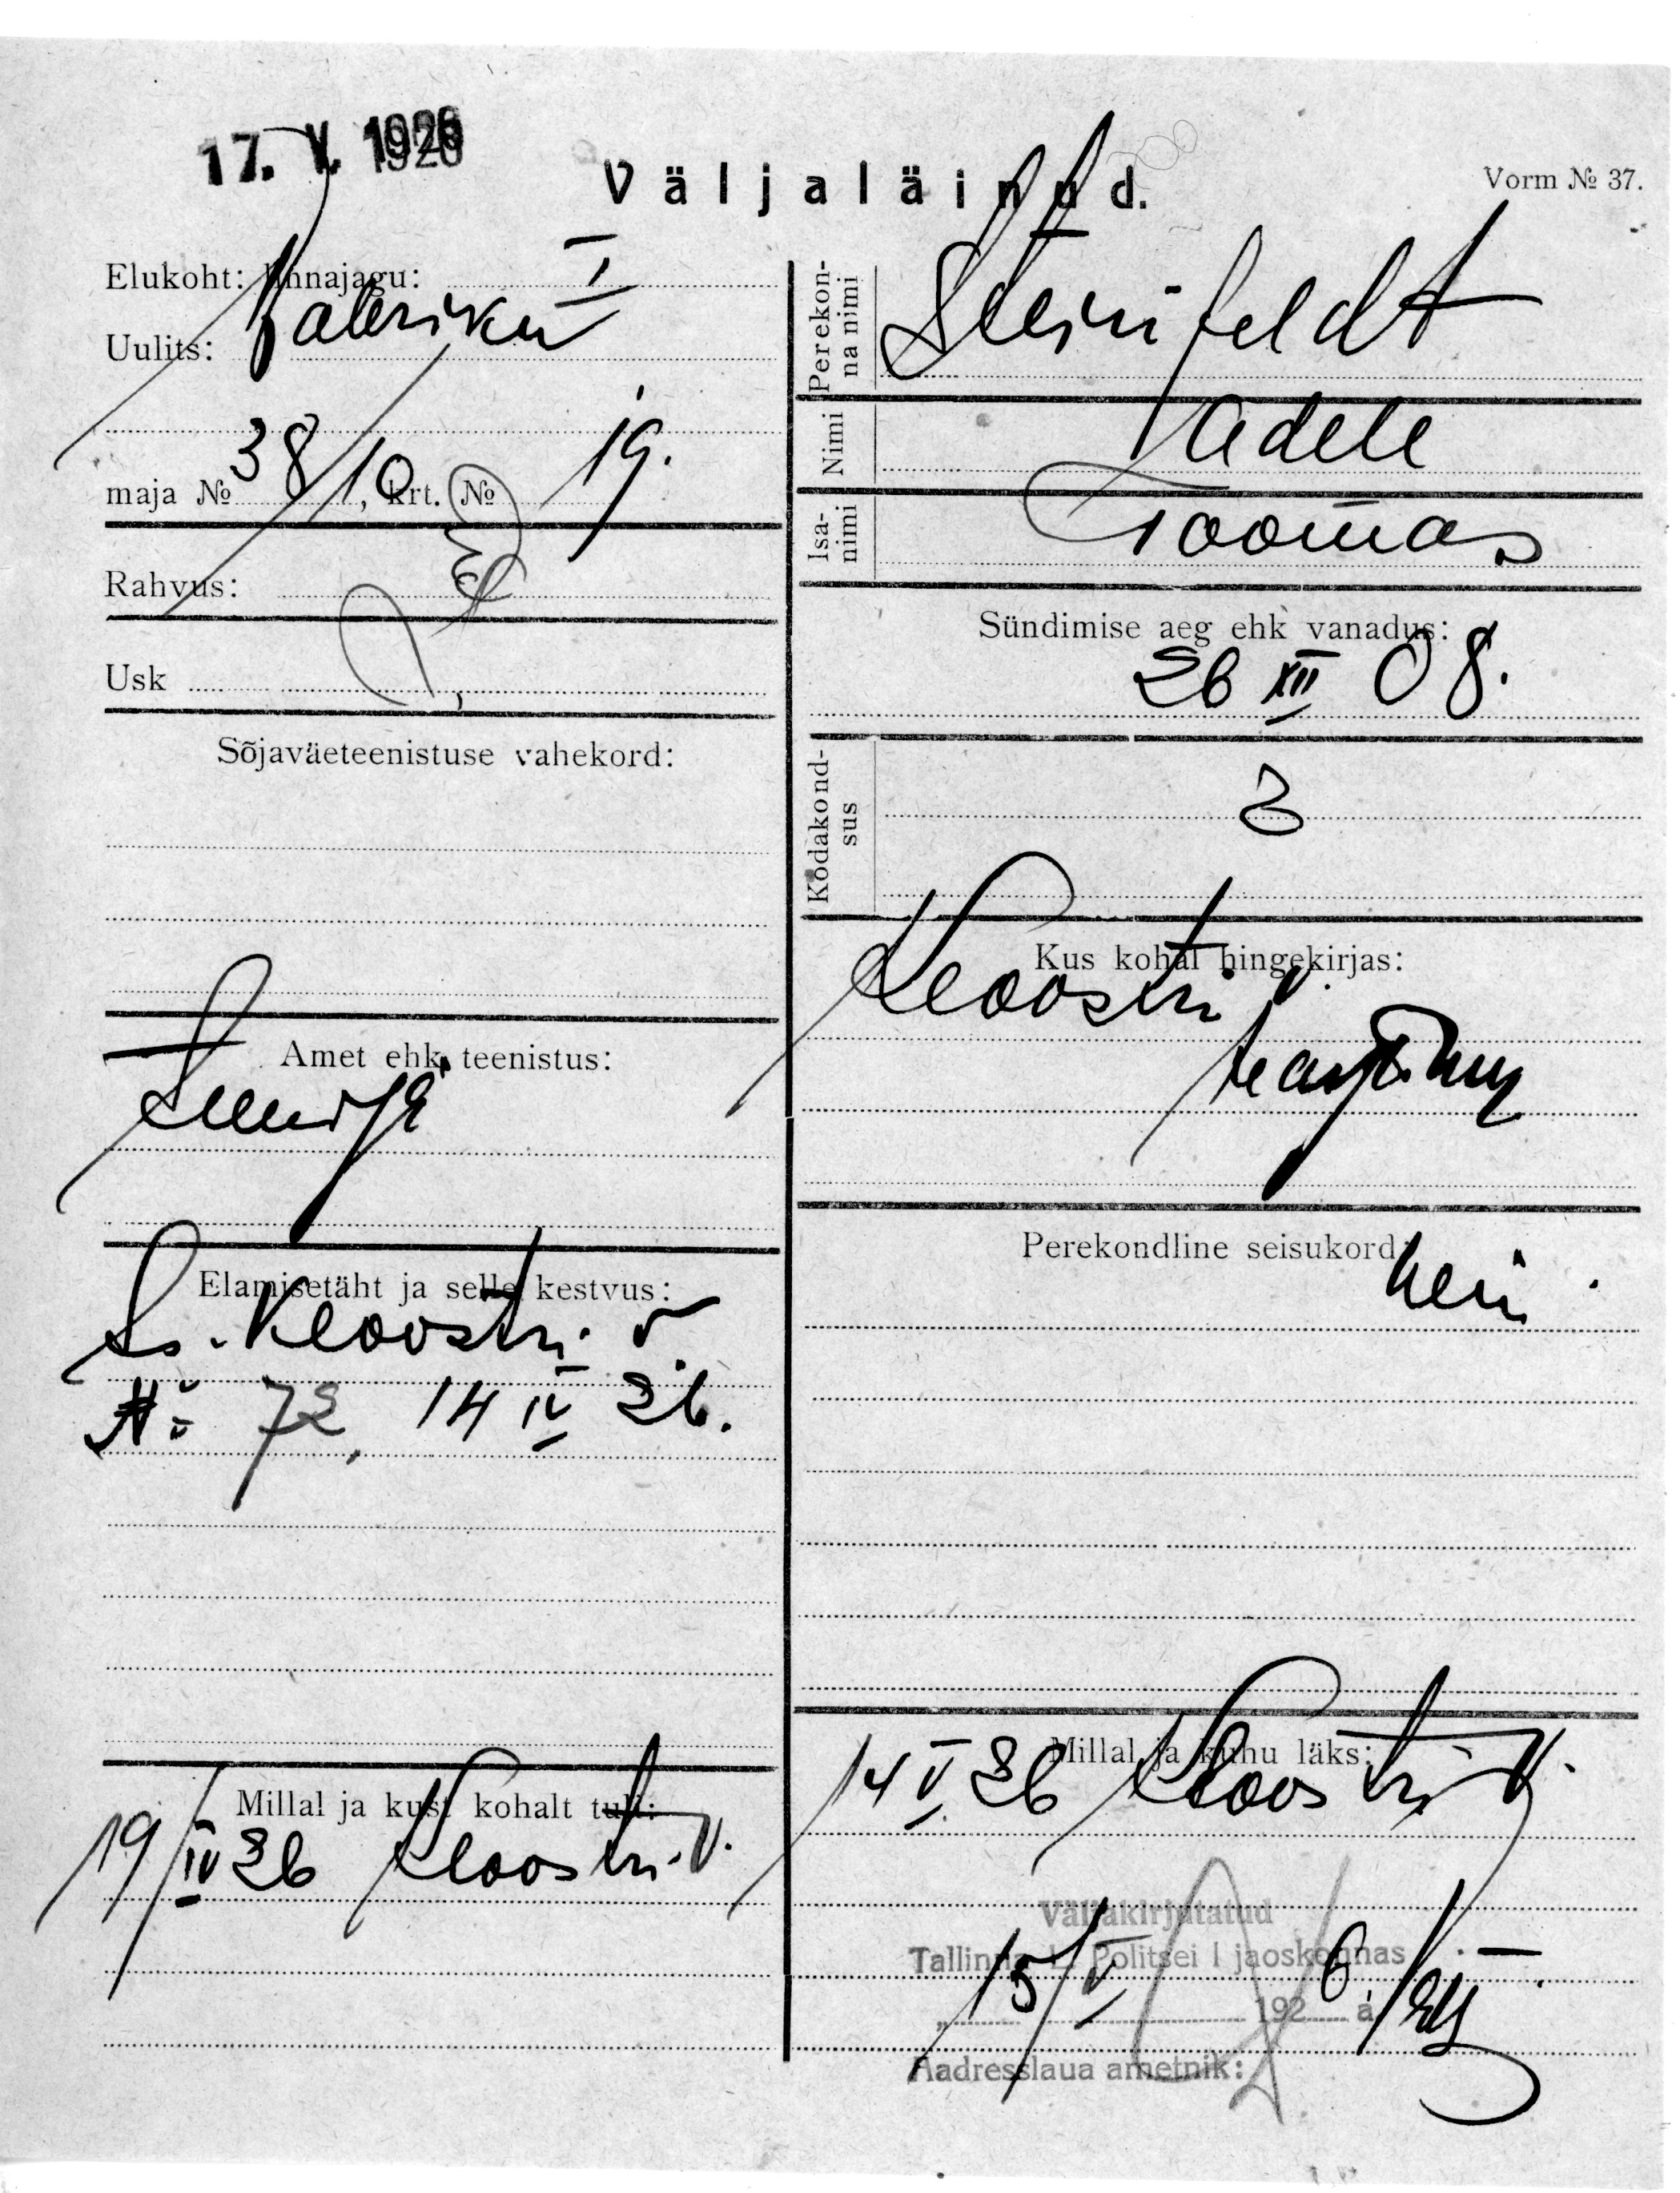 17. V. 1926
Väljaläinud.
Vorm № 37.
Elukoht: linnajagu: I
Uulits: Vabriku
maja № 38/10, krt. № 19.
Rahvus:
Usk
Sõjaväeteenistuse vahekord:
Amet ehk teenistus:
Elamisetäht ja selle kestvus:
Is. Kloostri v.
№ 72, 14 IV 26.
Millal ja kust kohalt tuli:
19/IV 26 Kloostri v.
Perekonna nimi Steinfeldt
Nimi Adele
Isanimi Toomas
Sündimise aeg ehk vanadus:
26 XII 08.
Kodakondsus
Kus kohal hingekirjas:
Kloostri v.
Perekondline seisukord:
14 V 26 Kloostri v.
Millal ja kuhu läks:
Väljakirjutatud
Tallinna L. Politsei I jaoskonnas
„15/V 1926 a
Aadresslaua ametnik: